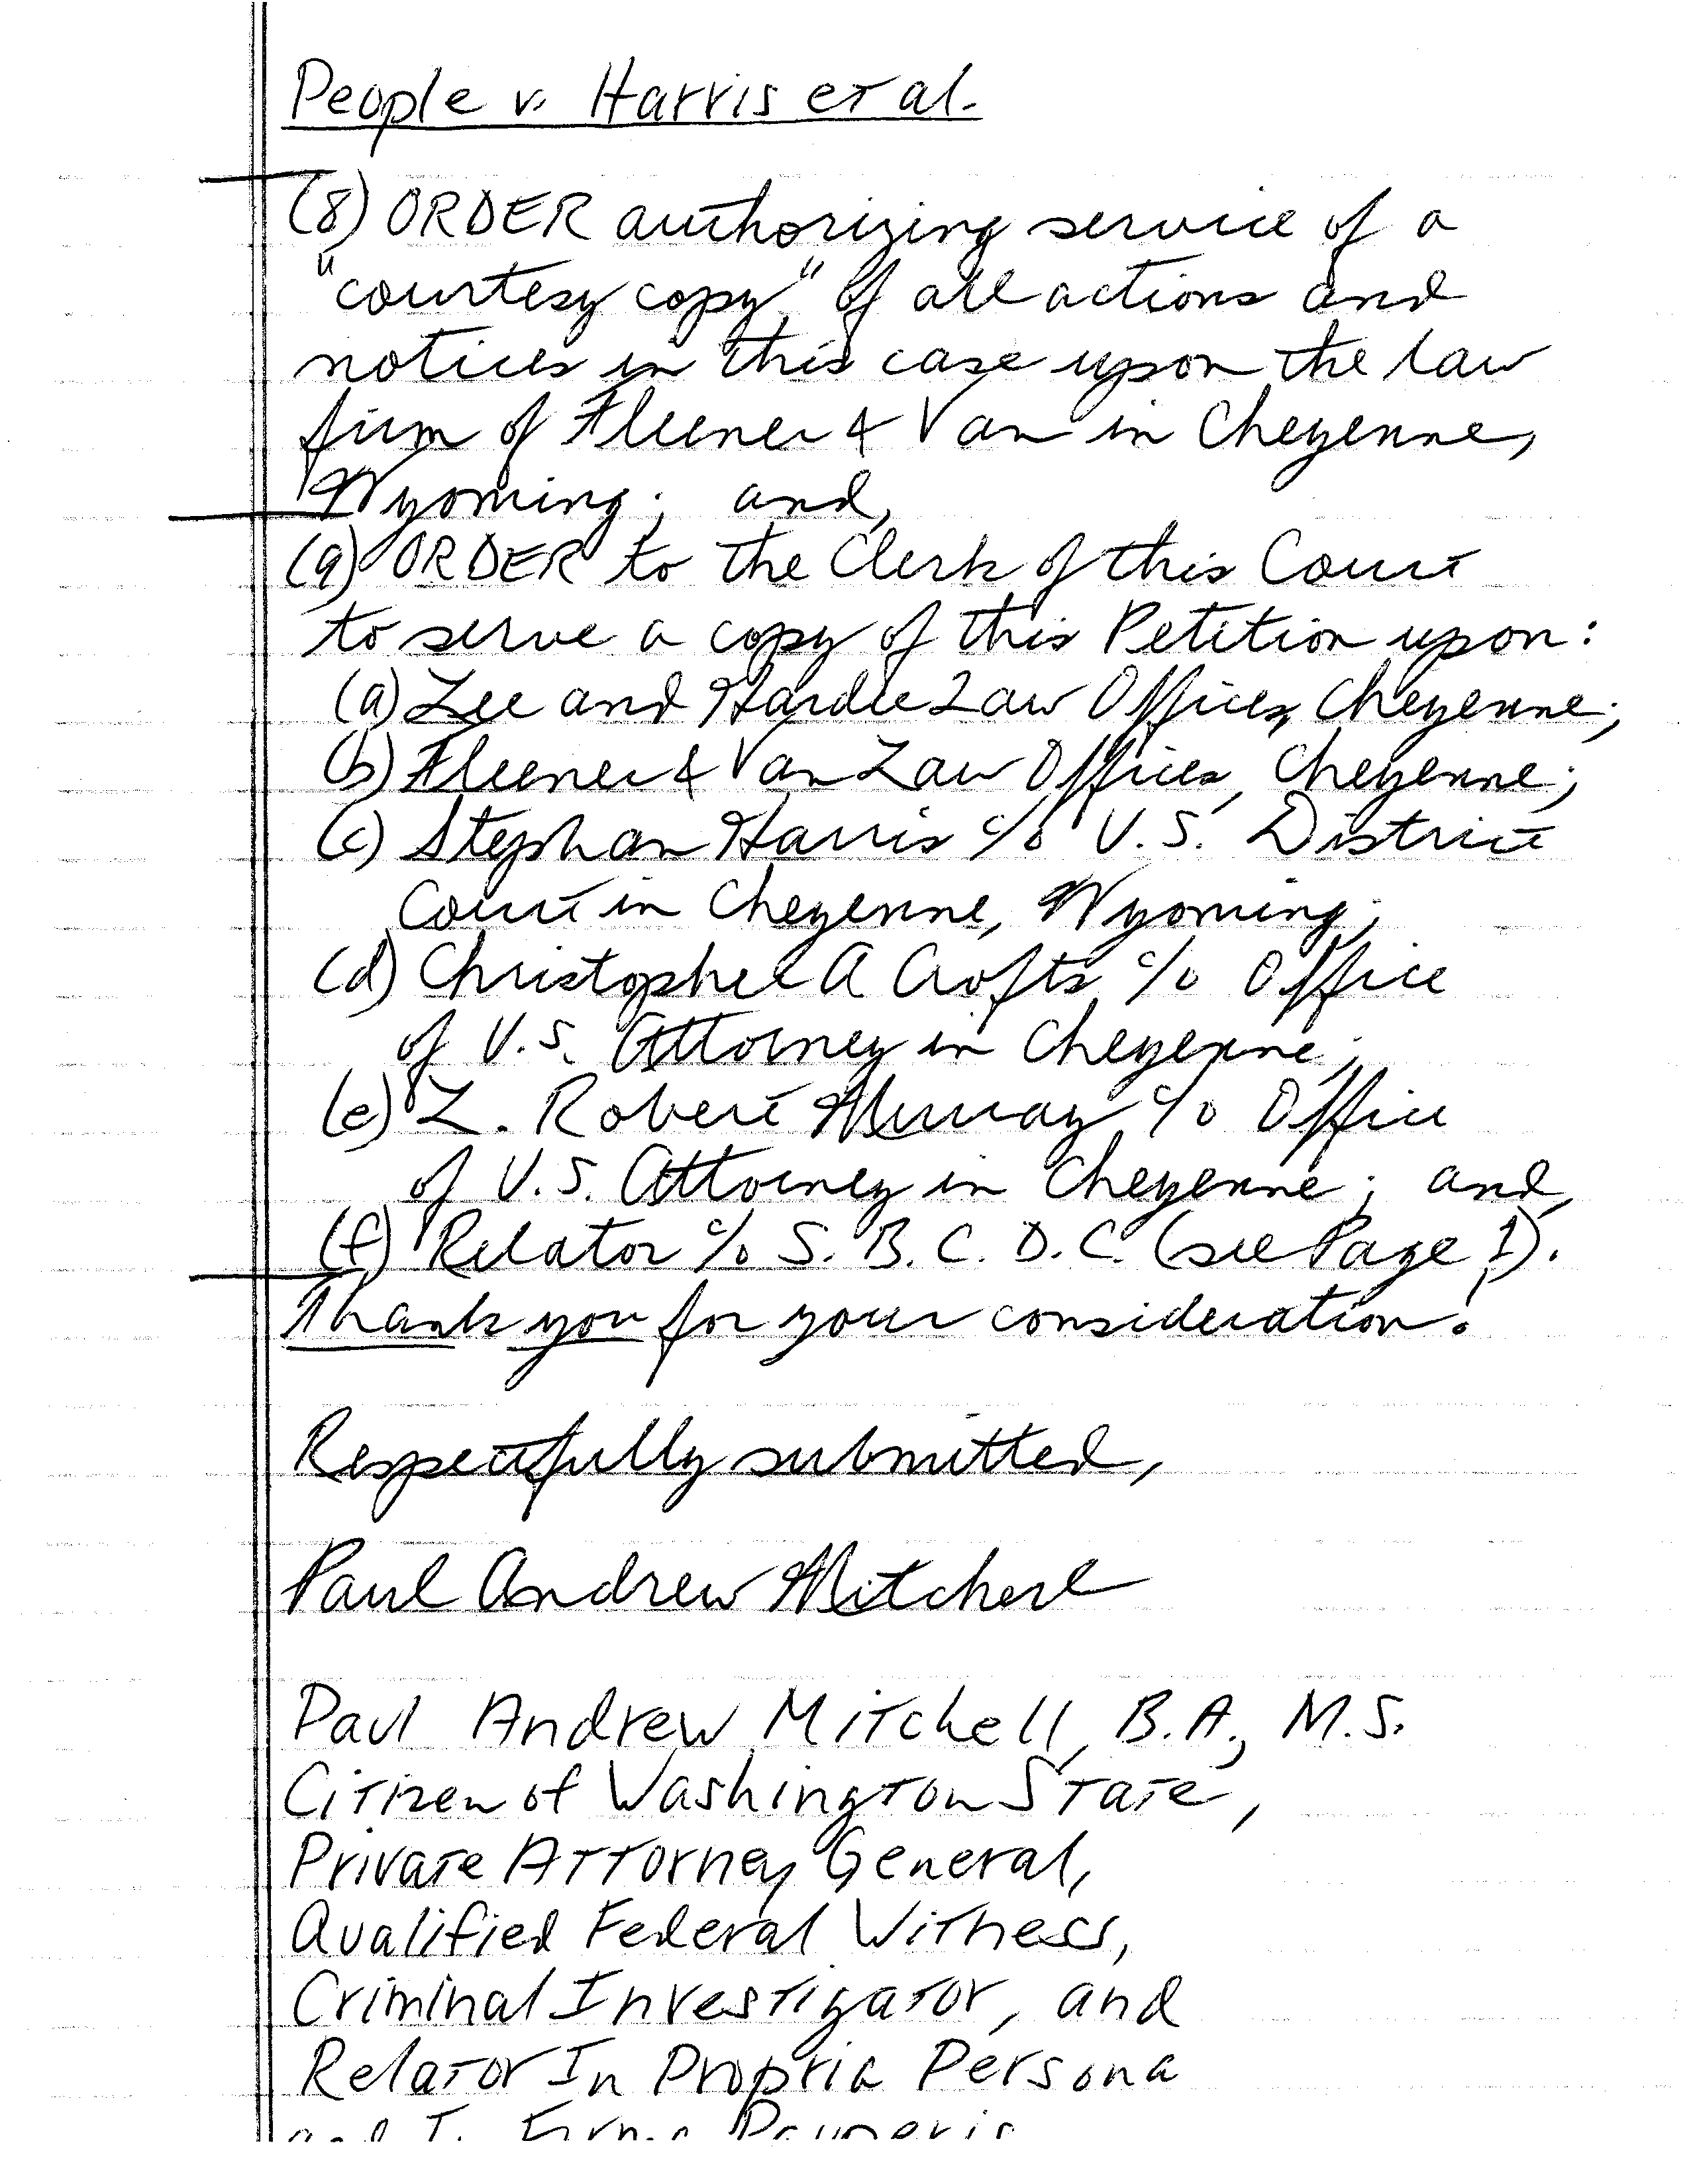 People v. Harris et al.
(8) ORDER authorizing service of a
"courtesy copy" of all actions and
notices in this case upon the law
firm of Fleener & Van in Cheyenne,
Wyoming; and,
(9) ORDER to the Clerk of this Court
to serve a copy of this Petition upon:
(a) Lee and Hardee Law Offices, Cheyenne;
(b) Fleener & Van Law Offices, Cheyenne;
(c) Stephan Harris c/o U.S. District
Court in Cheyenne, Wyoming;
(d) Christopher A Crofts c/o Office
of U.S. Attorney in Cheyenne;
(e) L. Robert Murray c/o Office
of U.S. Attorney in Cheyenne; and,
(f) Relator c/o S.B.C.D.C. (see Page 1).
Thank you for your consideration.
Respectfully submitted,
Paul Andrew Mitchell
Paul Andrew Mitchell, B.A., M.S.
Citizen of Washington State,
Private Attorney General,
Qualified Federal Witness,
Criminal Investigator, and
Relator In Propria Persona
and In Forma Pauperis